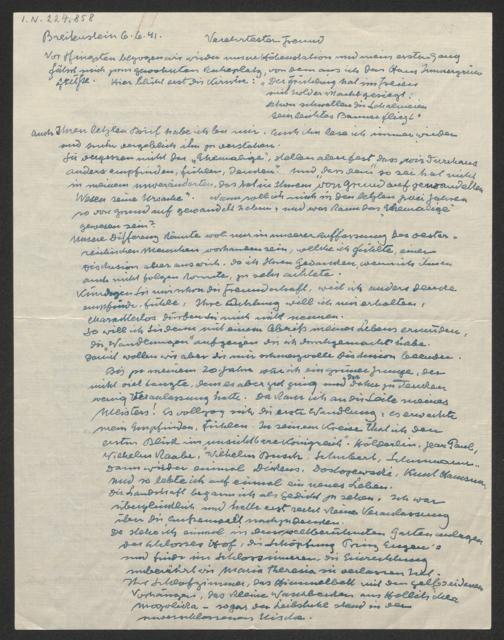 I.N. 224.858
Breitenstein 6.6.41. Verehrtester Freund
Vor Pfingsten bezogen wir wieder unsere Höhenstation und mein erster Gang
führt mich zum gewohnten Ruheplatz, von dem aus ich das Haus Immergrün
grüsse. Hier blüht erst die Kirsche: "Der Frühling hat im Freien
mit holder Macht gesiegt:
schon
sein leichtes Banner fliegt"
Auch Ihren letzten Brief habe ich bei mir. Auch ihn lese ich immer wieder
und suche vergeblich ihn zu verstehen.
Sie vergessen nicht das "Ehemalige", stellen aber fest dass wir durchaus
anders empfinden, fühlen, denken. Und dass dem so sei hat nicht
in meinem unveränderten, das hat in Ihrem "von Grund auf gewandelten
Wesen seine Ursache". Wann soll ich mich in den letzten zwei Jahren
so von Grund auf gewandelt haben, und was kann das "Ehemalige"
gewesen sein?
Unsere Differenz könnte wol nur in unserer Auffassung des oester-
reichischen Menschen vorhanden sein, welche ich fühlte, einer
Diskussion aber auswich, da ich Ihren Gedanken, wenn ich ihnen
auch nicht folgen konnte, zu sehr achtete.
Kündigen Sie mir schon die Freundschaft, weil ich anders denke
empfinde, fühle, Ihre Achtung will ich mir erhalten,
charakterlos dürfen Sie mich nicht nennen.
So will ich Sie denn mit einem Abriss meines Lebens ermüden,
die "Wandlungen" aufzeigen die ich durchgemacht habe.
Damit wollen wir aber die mir schmerzvolle Diskussion beenden.
Bis zu meinem 20 Jahre war ich ein grüner Junge, der
nicht viel taugte, dem es aber gut ging und der daher zu denken
wenig Veranlassung hatte. Da kam ich an die Seite meines
Meisters! Es vollzog sich die erste Wandlung, es erwachte
mein Empfinden, Fühlen. In seinem Kreise that ich den
ersten Blick ins unsichtbare Königreich. Hölderlin, Jean Paul,
Wilhelm Raabe, Wilhelm Busch, Schubert, Schumann..
Dann wieder einmal Dickens, Dostojewski, Knut Hamsun
und so lebte ich auf einmal ein neues Leben.
Die Landschaft begann ich als Gedicht zu sehen, ich war
überglücklich und hatte erst recht keine Veranlassung
über die Aussenwelt nachzudenken.
Da stehe ich einmal in den weltberühmten Gartenanlagen
des Schlosses Hof, die Schöpfung Prinz Eugen's
und finde im Schlossinneren, die Einrichtung
unberührt wie Maria Theresia sie verlassen hat.
Ihr Schlafzimmer, das Himmelbett mit den gelbseidenen
Vorhängen, das kleine Waschbecken aus Hollitscher
Majolika – sogar der Leibstuhl stand in der
unverschlossenen Nische.